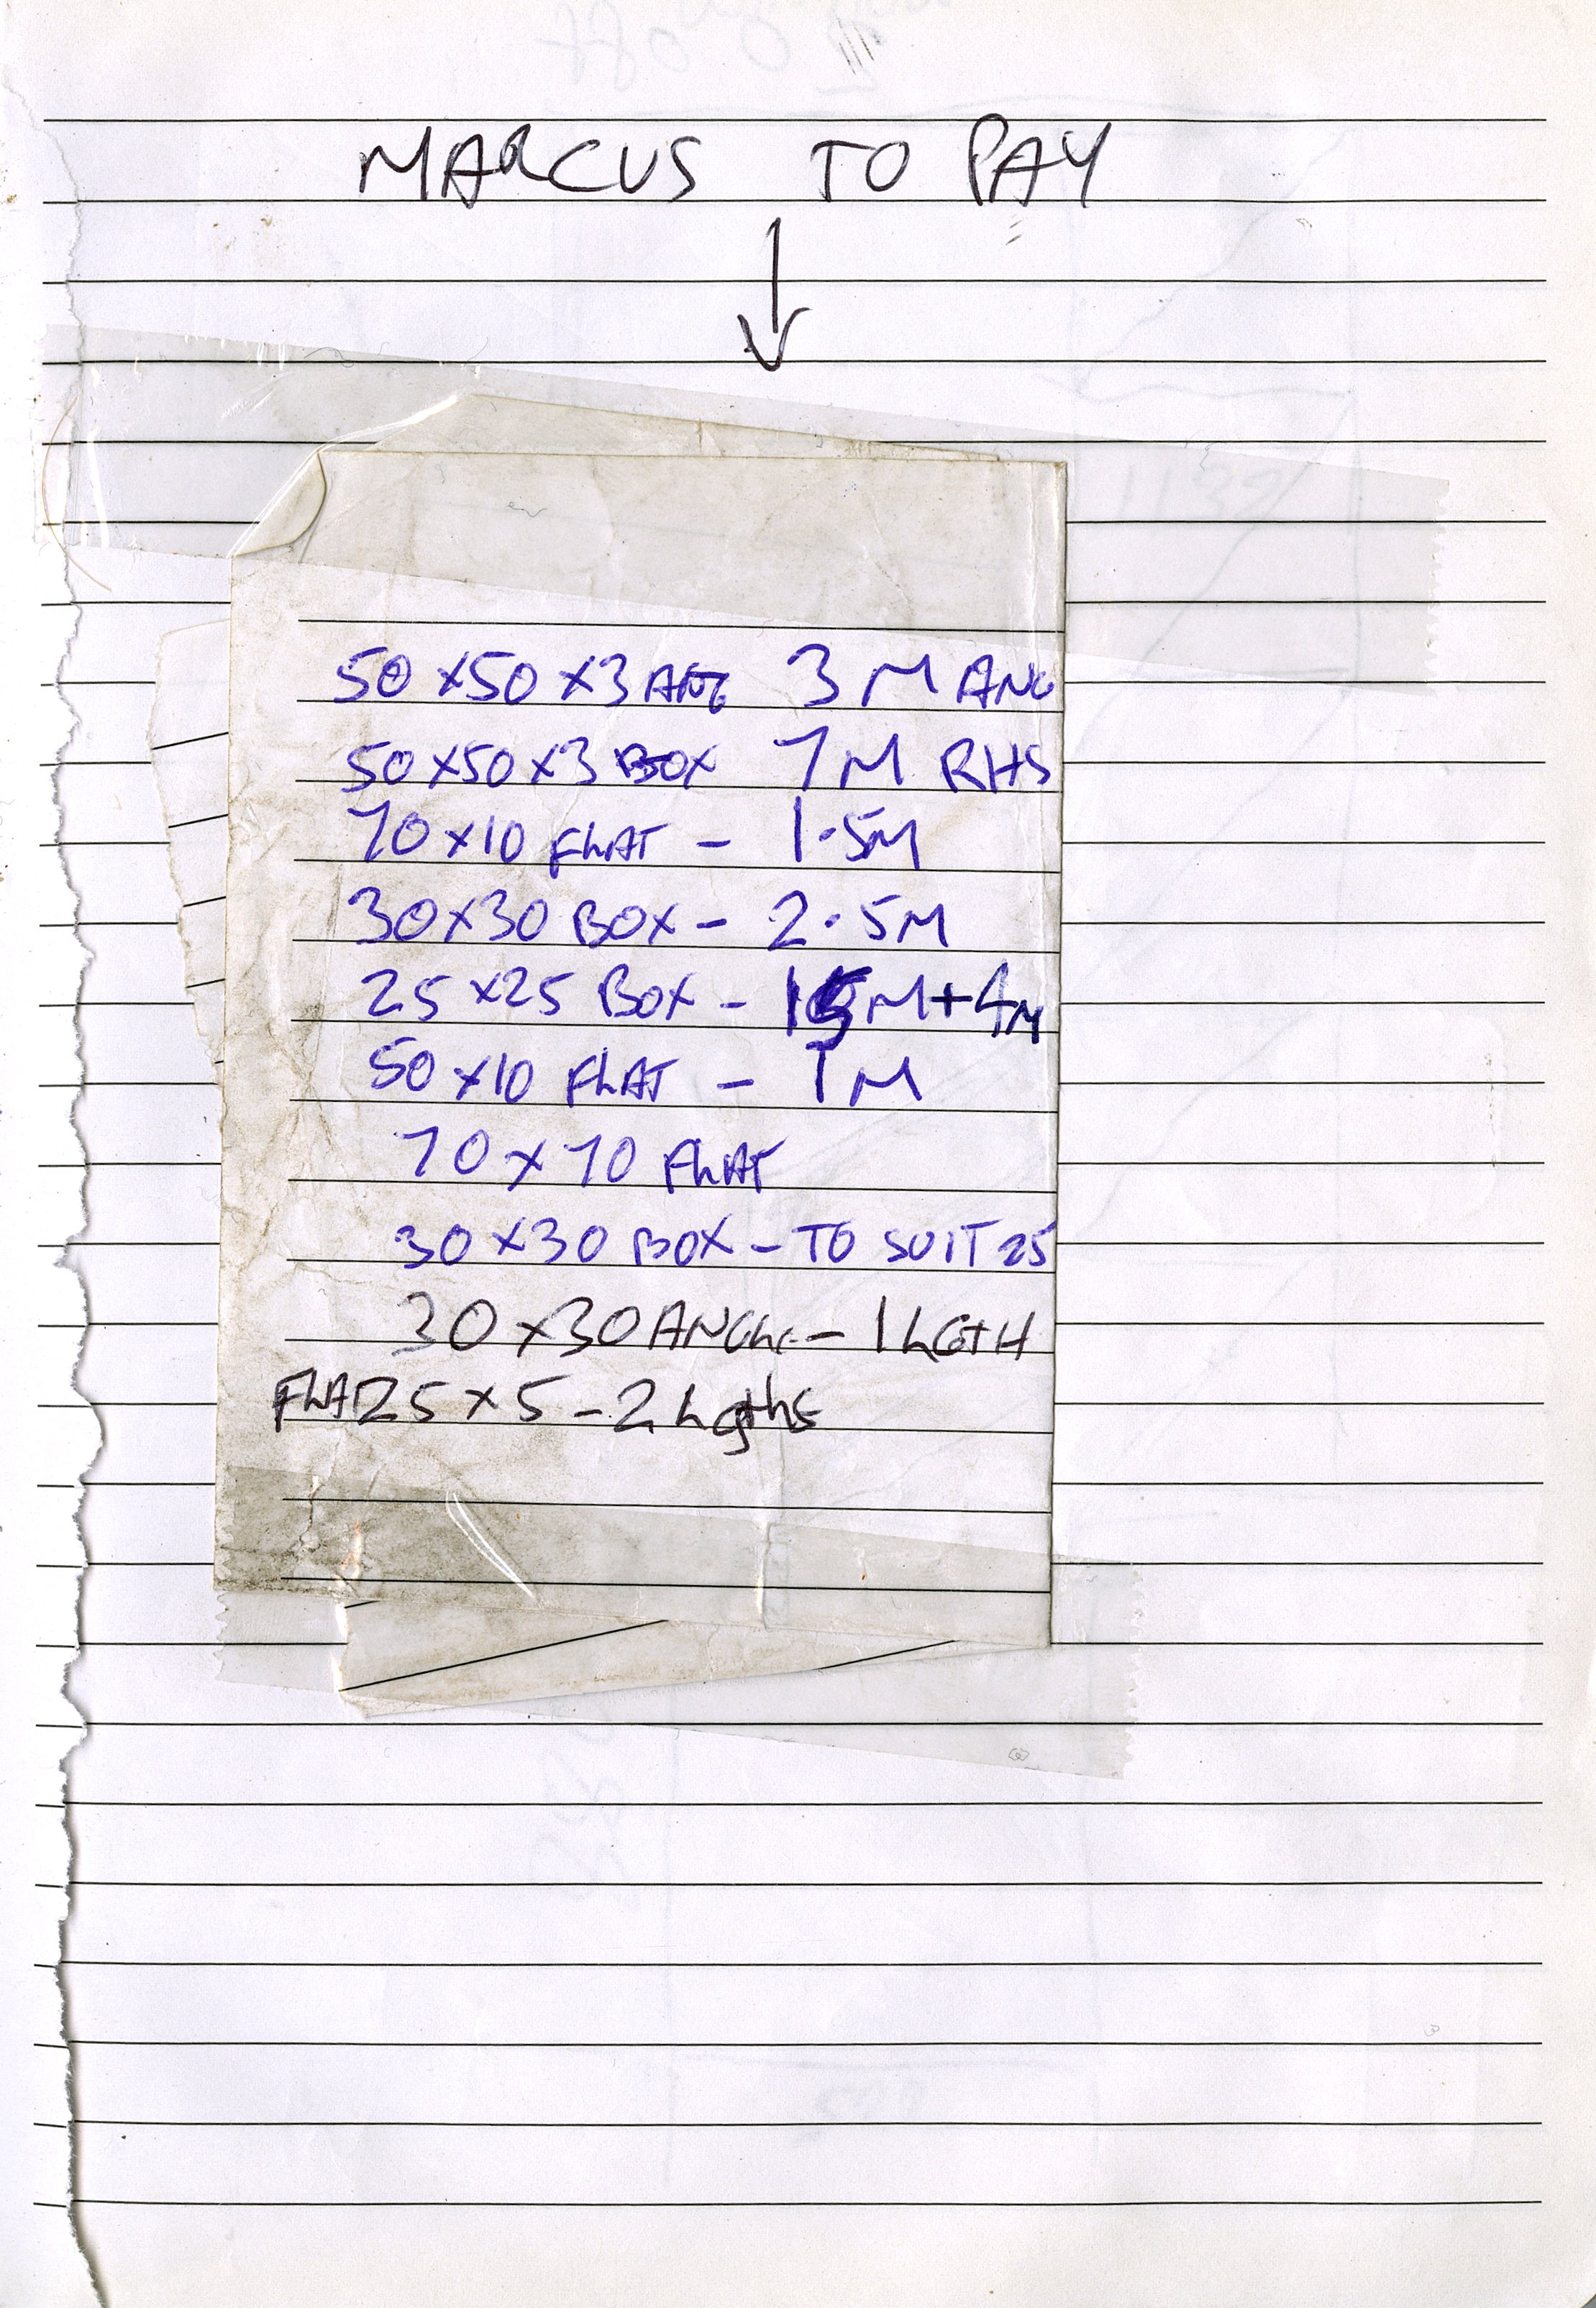 MARCUS TO PAY
50 x50 x3 3 M ANG
50 x50 x3 BOX 7M RHS
70 x10 FLAT - 1.5M
30x30 BOX - 2.5M
25 x25 BOX - 15M+4M
50 x10 FLAT - 1M
70 x 10 FLAT
30 x30 BOX - TO SUIT 25
30 x30 ANGLE - 1 LGTH
FLAT 25 x 5 - 2 Lgths